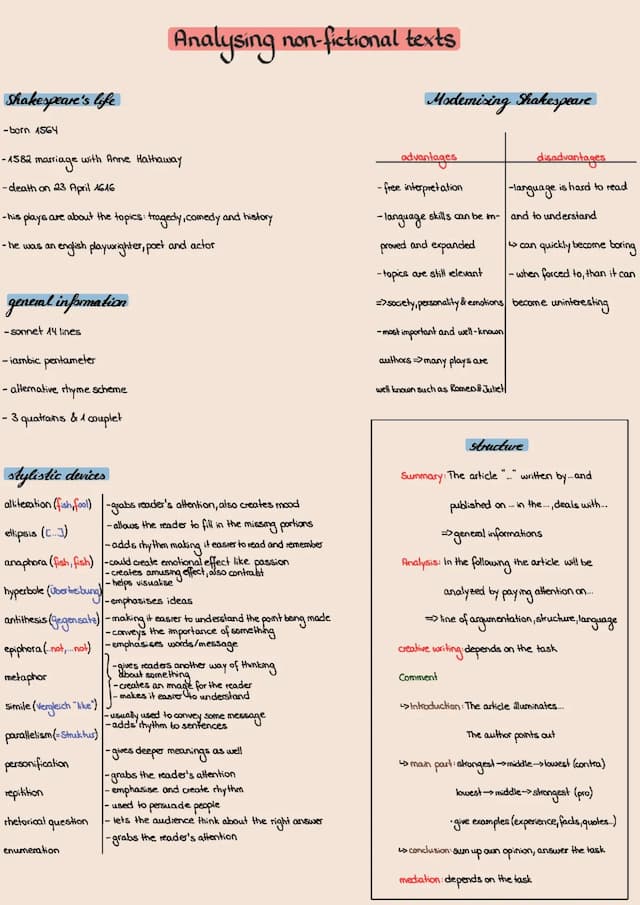 Analysing non-fictional texts
Shakespeare's life
-born 1564
-1582 marriage with Anne Hathaway
-death on 23 April 1616
-his plays are about the topics: tragedy, comedy and history
-he was an english playwrighter, poet and actor
general information
-sonnet 14 lines
-iambic pentameter
-alternative rhyme scheme
- 3 quatrains & 1 couplet
Modernising Shakespeare
advantages
-free interpretation
-language skills can be im-
proved and expanded
-topics are still relevant
=>society, personality & emotions
-most important and well-known
authors => many plays are
well known such as Romeo & Juliet
disadvantages
-language is hard to read
and to understand
↳ can quickly become boring
- when forced to, than it can
become uninteresting
stylistic devices
alliteration (fish, fool)
ellipsis ([...])
anaphora (fish, fish)
hyperbole (Übertreibung)
antithesis (Gegensatz)
epiphora (...not, ...not)
metaphor
simile (Vergleich "like")
parallelism (=Struktur)
personification
repitition
rhetorical question
enumeration
-grabs reader's attention, also creates mood
-allows the reader to fill in the missing portions
-adds rhythm making it easier to read and remember
-could create emotional effect like passion
-creates amusing effect, also contrabt
-helps visualise
-emphasises ideas
-making it easier to understand the point being made
-conveys the importance of something
-emphasises words/message
-gives readers another way of thinking
about something
-creates an image for the reader
-makes it easier to understand
-usually used to convey some message
-adds rhythm to sentences
-gives deeper meanings as well
-grabs the reader's attention
-emphasise and create rhythm
- used to persuade people
- lets the audience think about the right answer
-grabs the reader's attention
structure
Summary: The article "..." written by...and
published on ... in the..., deals with...
=> general informations
Analysis: In the following the article will be
analyzed by paying attention on...
=> line of argumentation, structure, language
creative writing: depends on the task
Comment
↳ Introduction: The article illuminates...
The author points out
↳ main part: strongest → middle → lowest (contra)
lowest → middle → strongest (pro)
· give examples (experience, facts, quotes...)
↳ conclusion: sum up own opinion, answer the task
mediation: depends on the task